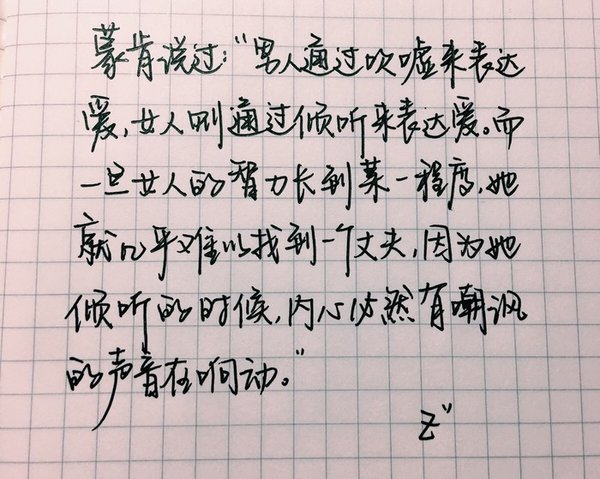 蒙肯说过:“男人通过吹嘘来表达
爱,女人则通过倾听来表达爱。而
一旦女人的智力长到某一程度,她
就几乎难以找到一个丈夫,因为她
倾听的时候,内心必然有嘲讽
的声音在响动。”
Z"